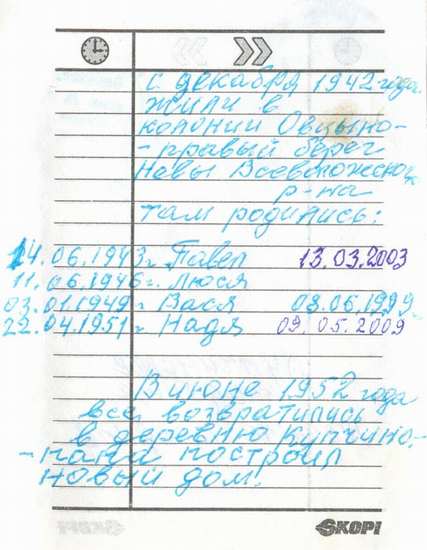 с декабря 1942 года
жили в
колонии Овцыно-
-правый берег
Невы Всеволожского
р-на
там родились:
14.06.1943г. Павел 13.03.2003
11.06.1946г. Люся
03.01.1949г. Вася 08.06.1999
22.04.1951г. Надя 09.05.2009
В июне 1952 года
все возвратились
в деревню Купчино.
-папа построил
новый дом.
SKOPI